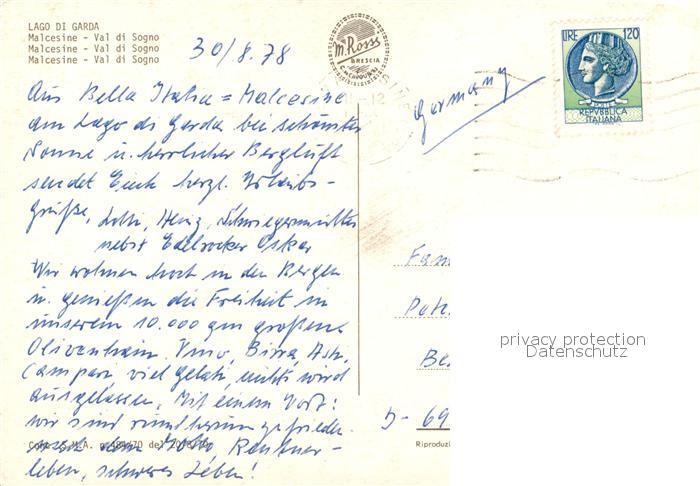 LAGO DI GARDA
Malcesine - Val di Sogno
Malcesine - Val di Sogno
Malcesine - Val di Sogno
30/8.78
M. Ross
BRESCIA
LIRE 120
REPVBBLICA
ITALIANA
12
Germany
Aus Bella Italia = Malcesine
am Lago di Garda bei schönster
Sonne u. herrlicher Bergluft
sendet Euch herzl. Urlaubs-
grüße, Lotti, Heinz, Schwiegermutter
nebst Edelrocker Oskar
Wir wohnen hoch in den Bergen
u. genießen die Freiheit in
unserem 10.000 qm großen
Olivenhain. Vino, Birra, Asti,
Campari viel Gelati, nichts wird
ausgelassen. Mit einem Wort:
wir sind rundherum zufrieden.
Rentner-
leben, schweres Leben!
Fam
Be
D - 69
privacy protection
Datenschutz
Reproduzi